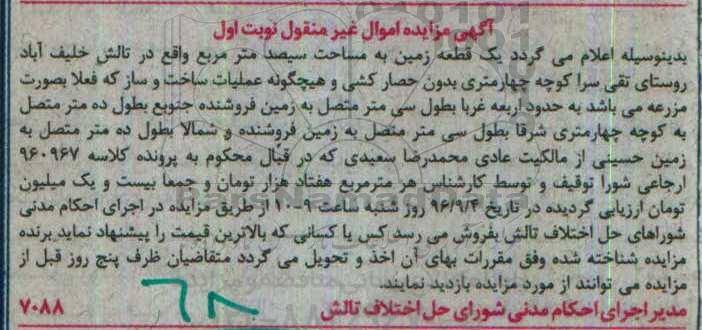 آگهی مزایده اموال غیر منقول نوبت اول
بدینوسیله اعلام می گردد یک قطعه زمین به مساحت سیصد متر مربع واقع در تالش خلیف آباد
روستای تقی سرا کوچه چهارمتری بدون حصار کشی و هیچگونه عملیات ساخت و ساز که فعلا بصورت
مزرعه می باشد به حدود اربعه غربا بطول سی متر متصل به زمین فروشنده جنوبع بطول ده متر متصل
به کوچه چهارمتری شرقا بطول سی متر متصل به زمین فروشنده و شمالا بطول ده متر متصل به
زمین حسینی از مالکیت عادی محمدرضا سعیدی که در قبال محکوم به پرونده کلاسه ۹۶۰۹۶۷
ارجاعی شورا توقیف و توسط کارشناس هر مترمربع هفتاد هزار تومان و جمعا بیست و یک میلیون
تومان ارزیابی گردیده در تاریخ ۹۶/۹/۴ روز شنبه ساعت ۹-۱۰ از طریق مزایده در اجرای احکام مدنی
شوراهای حل اختلاف تالش بفروش می رسد کس یا کسانی که بالاترین قیمت را پیشنهاد نماید برنده
مزایده شناخته شده وفق مقررات بهای آن اخذ و تحویل می گردد متقاضیان ظرف پنج روز قبل از
مزایده می توانند از مورد مزایده بازدید نمایند.
مدیر اجرای احکام مدنی شورای حل اختلاف تالش ۷۰۸۸